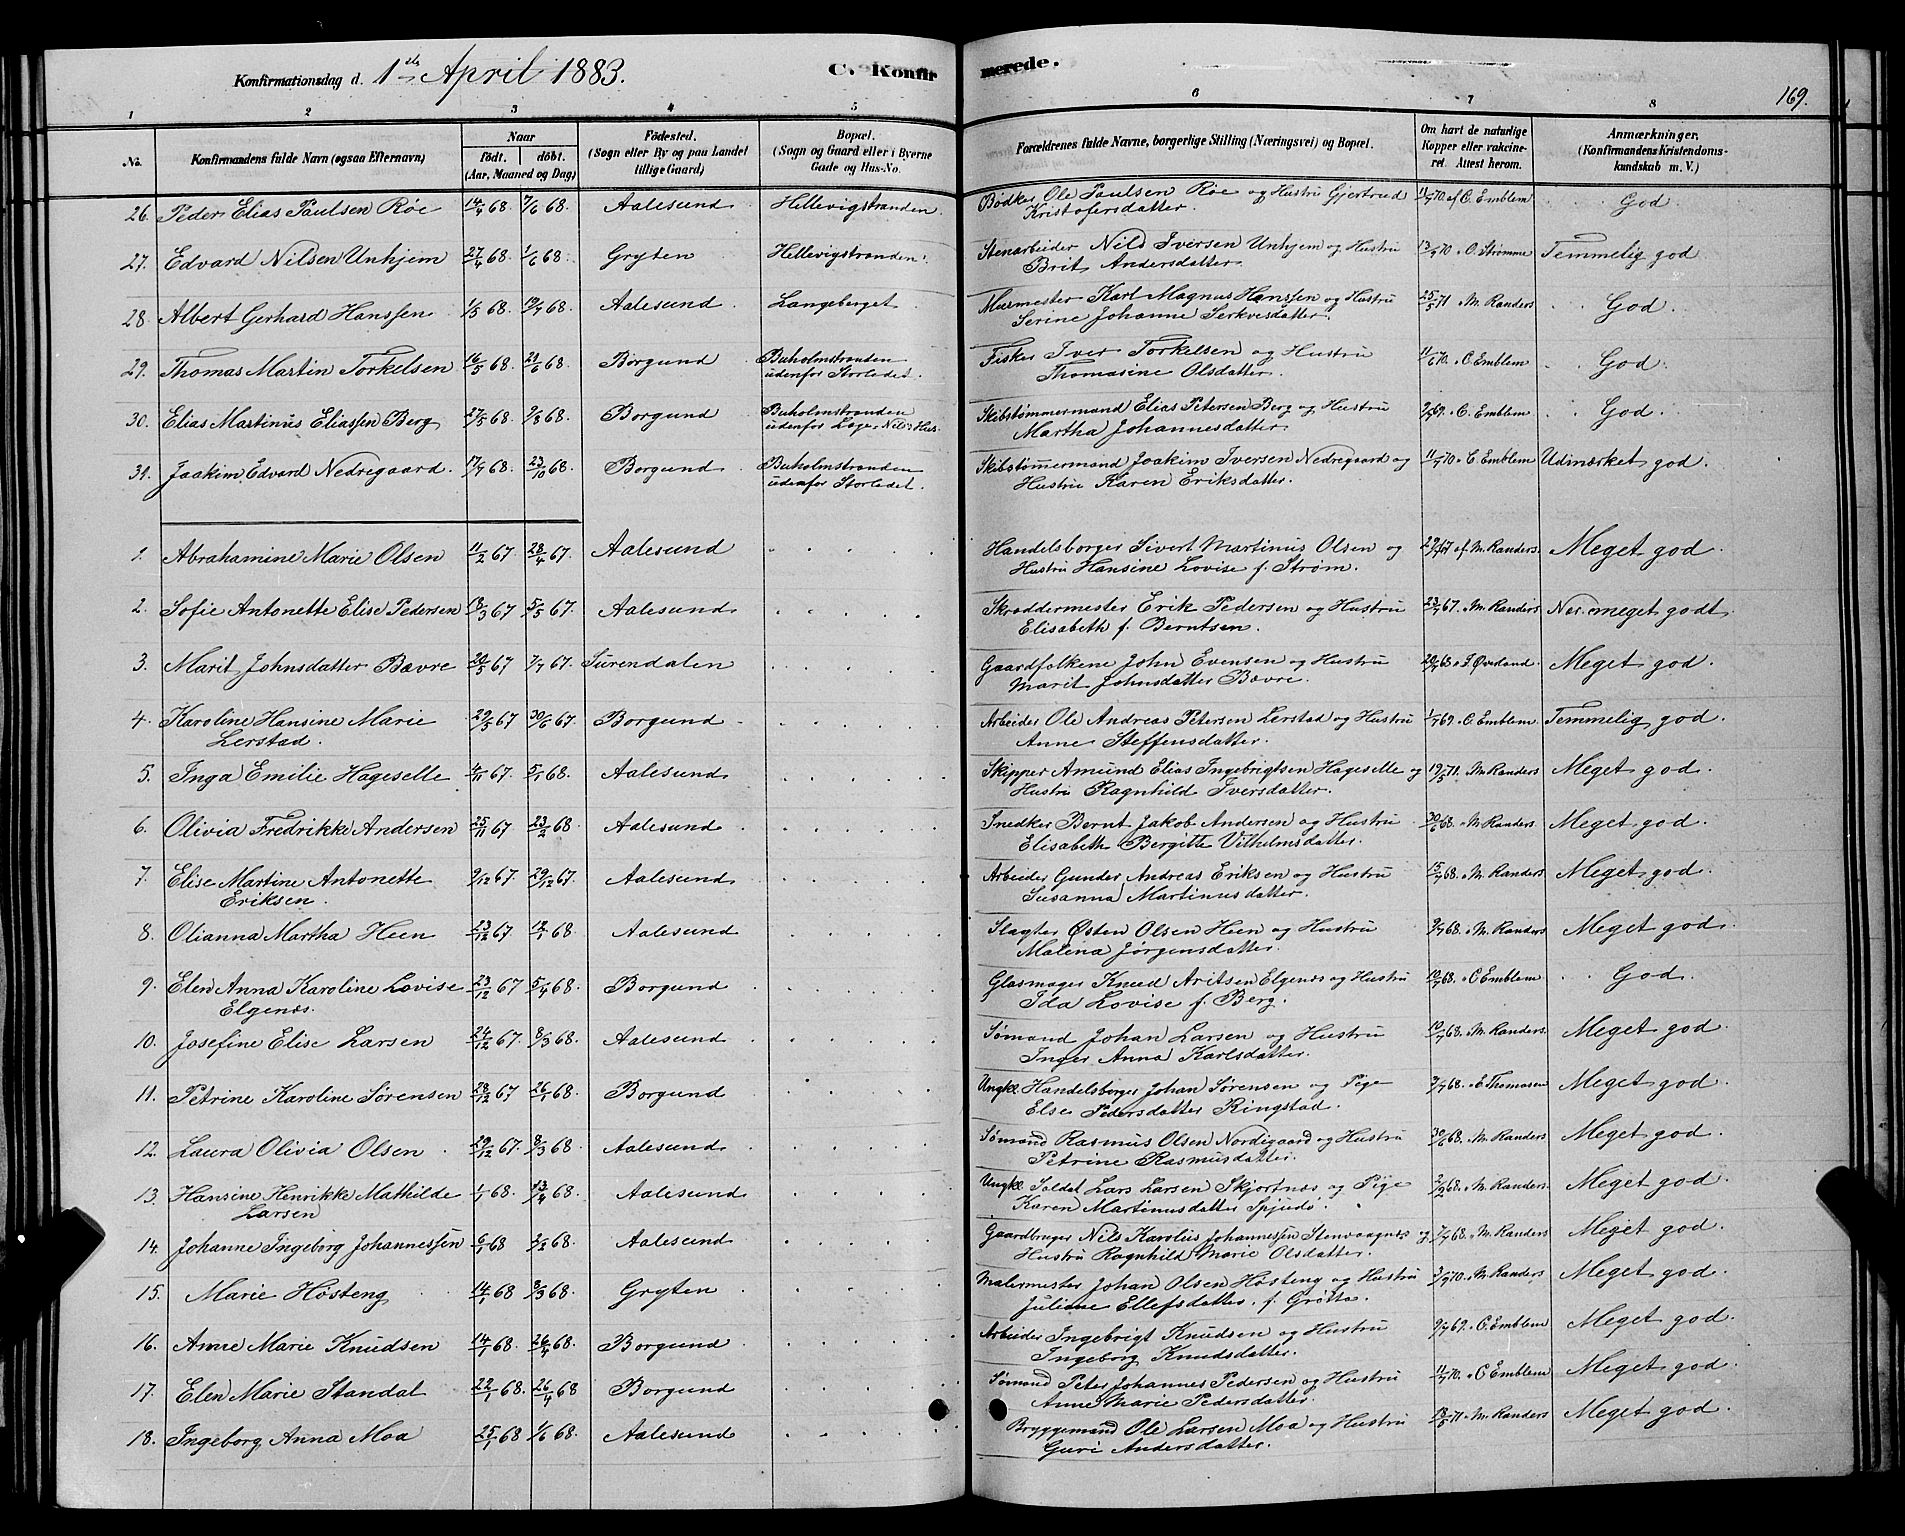 Konfirmationsdag d. 1ste April 1883.
C. Konfir
merede.
169.
1 2 3 4 5 6 7 8
No.
Konfirmandens fulde Navn (ogsaa Efternavn)
Naar
født. døbt.
(Aar, Maaned og Dag)
Fødested.
(Sogn eller By og paa Landet
tillige Gaard)
Bopæl.
(Sogn og Gaard eller i Byerne
Gade og Hus-No.
Forældrenes fulde Navne, borgerlige Stilling (Næringsvei) og Bopæl.
Om havt de naturlige
Kopper eller vakcine-
ret. Attest herom.
Anmærkninger.
(Konfirmandens Kristendoms-
kundskab m. V.)
26. Peder Elias Paulsen Røe 14/4 68. 7/6 68. Aalesund Hellevigstranden. Bødker Ole Paulsen Røe og Hustru Gjertrud 11/7 70. af C. Emblem God
Kristofersdatter.
27. Edvard Nilsen Unhjem 27/4 68. 1/6 68. Gryten Hellevigstranden. Stenarbeider Nils Iversen Unhjem og Hustru 13/9 70 " O. Strømme Temmelig god
Brit Andersdatter.
28. Albert Gerhard Hanssen 1/5 68. 19/7 68. Aalesund Langeberget. Murmester Karl Magnus Hanssen og Hustru 25/5 71 " M. Randers God.
Serine Johanne Serkvesdatter.
29. Thomas Martin Torkelsen 16/5 68. 21/6 68. Borgund Buholmstranden Fisker Iver Torkelsen og Hustru 11/6 70. " C. Emblem God.
udenfor Storledet. Thomasine Olsdatter.
30. Elias Martinus Eliassen Berg 27/5 68. 9/8 68. Borgund Buholmstranden Skibstømmermand Elias Petersen Berg og Hustru 9/7 69. " C. Emblem God.
udenfor Loge-Nils's Hus. Martha Johannesdatter.
31. Joakim Edvard Nedregaard. 17/9 68. 23/10 68. Borgund Buholmstranden Skibstømmermand Joakim Iversen Nedregaard og 11/7 70 " C. Emblem Udmærket god.
udenfor Storledet. Hustru Karen Eriksdatter.
1. Abrahamine Marie Olsen 11/2 67. 28/4 67. Aalesund Handelsborger Sivert Martinus Olsen og 29/7 67 af M. Randers. Meget god.
Hustru Hansine Lovise f. Strøm.
2. Sofie Antonette Elise Pedersen 18/3 67 5/5 67. Aalesund Skræddermester Erik Pedersen og Hustru 23/7 67. " M. Randers Nær meget godt.
Elisabeth f. Berntsen.
3. Marit Johnsdatter Bævre 20/5 67 7/7 67. Surendalen Gaardfolkene John Evensen og Hustru 20/9 68 " J. Øverland. Meget god.
Marit Johnsdatter Bævre.
4. Karoline Hansine Marie 29/5 67 30/6 67. Borgund Arbeider Ole Andreas Petersen Lerstad og Hustru 1/7 69. " C. Emblem. Temmelig god.
Lerstad. Anne Steffensdatter.
5. Inga Emilie Hageselle 4/11 67. 5/1 68. Aalesund Skipper Amund Elias Ingebrigtsen Hageselle og 19/5 71. " M. Randers Meget god.
Hustru Ragnhild Iversdatter.
6. Olivia Fredrikke Andersen 25/11 67 23/2 68. Aalesund Snedker Bernt Jakob Andersen og Hustru 30/6 68. " M. Randers. Meget god.
Elisabeth Bergitte Vilhelmsdatter.
7. Elise Martine Antonette 9/12 67. 29/12 67. Aalesund Arbeider Gunder Andreas Eriksen og Hustru 15/7 68. " M. Randers Meget god.
Eriksen. Susanna Martinusdatter.
8. Olianna Martha Heen 23/12 67. 12/1 68. Aalesund Slagter Østen Olsen Heen og Hustru 9/7 68. " M. Randers Meget god.
Malina Jørgensdatter.
9. Elen Anna Karoline Lovise 23/12 67 5/4 68. Borgund Glasmager Knud Aritsen Elgenæs og Hustru 10/7 68. " C Emblem God.
Elgenæs. Ida Lovise f. Berg.
10. Josefine Elise Larsen 24/12 67. 8/3 68. Aalesund Sømand Johan Larsen og Hustru 10/7 68. " M. Randers. Meget god.
Inger Anna Karlsdatter.
11. Petrine Karoline Sørensen 28/12 67 26/1 68. Borgund Ungkl. Handelsborger Johan Sørensen og Pige 7/7 68. " E Thomasen Meget god.
Else Pedersdatter Ringstad.
12. Laura Olivia Olsen 29/12 67. 8/3 68. Aalesund Sømand Rasmus Olsen Nordigaard og Hustru 30/6 68. " M. Randers Meget god.
Petrine Rasmusdatter.
13. Hansine Henrikke Mathilde 1/1 68. 13/4 68. Aalesund Ungkl. Soldat Lars Larsen Skjortnæs og Pige 2/2 68. " M. Randers Meget god.
Larsen Karen Martinusdatter
14. Johanne Ingeborg Johannessen 6/1 68 2/2 68. Aalesund Gaardbruger Nils Karolus Johannessen Stenvaagnæs og 7/9 68. " M. Randers Meget god.
Hustru Ragnhild Marie Olsdatter.
15. Marie Høsteng 14/1 68 8/3 68. Gryten Malermester Johan Olsen Høsteng og Hustru 3/9 70. " M. Randers Meget god.
Juliane Ellefsdatter. f. Grøtta.
16. Anne Marie Knudsen 14/1 68. 26/4 68. Borgund Arbeider Ingebrigt Knudsen og Hustru 9/7 69. " C. Emblem Meget god.
Ingeborg Knudsdatter.
17. Elen Marie Standal 22/1 68. 26/4 68 Borgund Sømand Peter Johannes Pedersen og Hustru 11/7 70. " C Emblem Meget god.
Anne Marie Pedersdatter.
18. Ingeborg Anna Moa 25/1 68 1/6 68. Aalesund Bryggemand Ole Larsen Moa og Hustru 18/5 71 " M. Randers Meget god.
Guri Andersdatter.